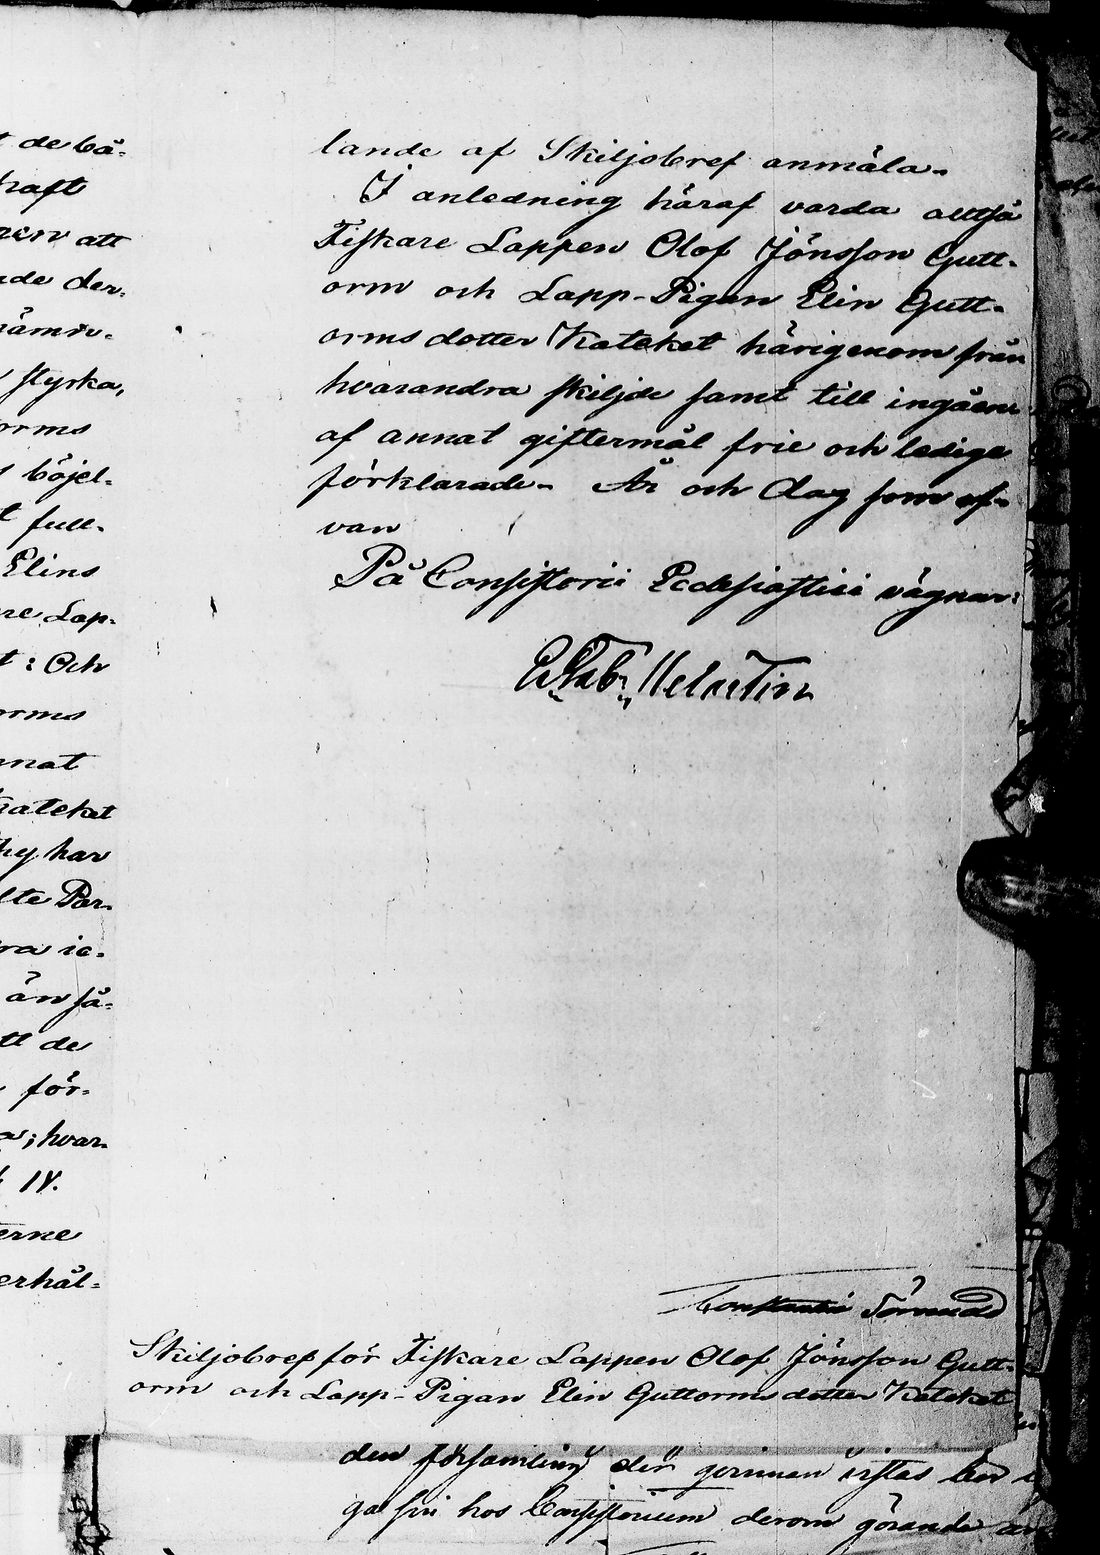 t de bå-
haft
att
der-
nämn-
styrka,
orms
böjel-
t full-
Elins
re Lap-
t: Och
orms
nnat
Kateket
hy har
lte Par-
ra ic-
än så-
tt de
för-
a; hvar-
14.
terne
erhål-
lande af Skiljobref anmäla.
I anledning häraf varda alltså
Fiskare Lappen Olof Jönsson Gutt-
orm och Lapp-Pigan Elin Gutt-
orms dotter Kateket härigenom från
hvarandra skiljde samt till ingåen
af annat giftermål frie och ledige
förklarade. År och dag som of-
van
På Consistorii Ecclesiastici vägnar:
Skiljobref för Fiskare Lappen Olof Jönsson Gutt-
orm och Lapp-Pigan Elin Guttorms dotter Kateket
den församling der qvinnan
hos Consistorium derom görande